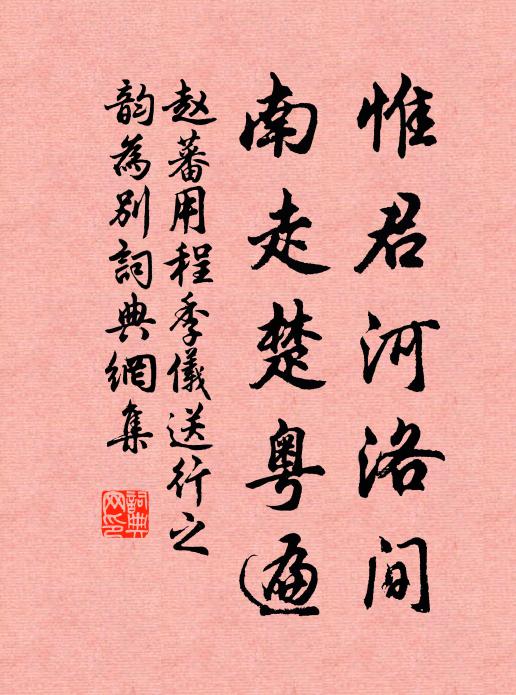 惟君河洛间
南走楚粤遍
赵蕃用程季仪送行之
韵为别词典网集
詞典
网印